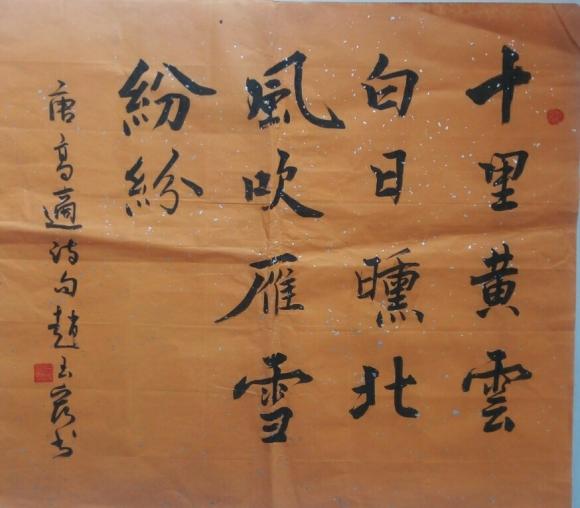 十里黄雲
白日曛北
風吹雁雪
紛紛
唐高適诗句趙玉